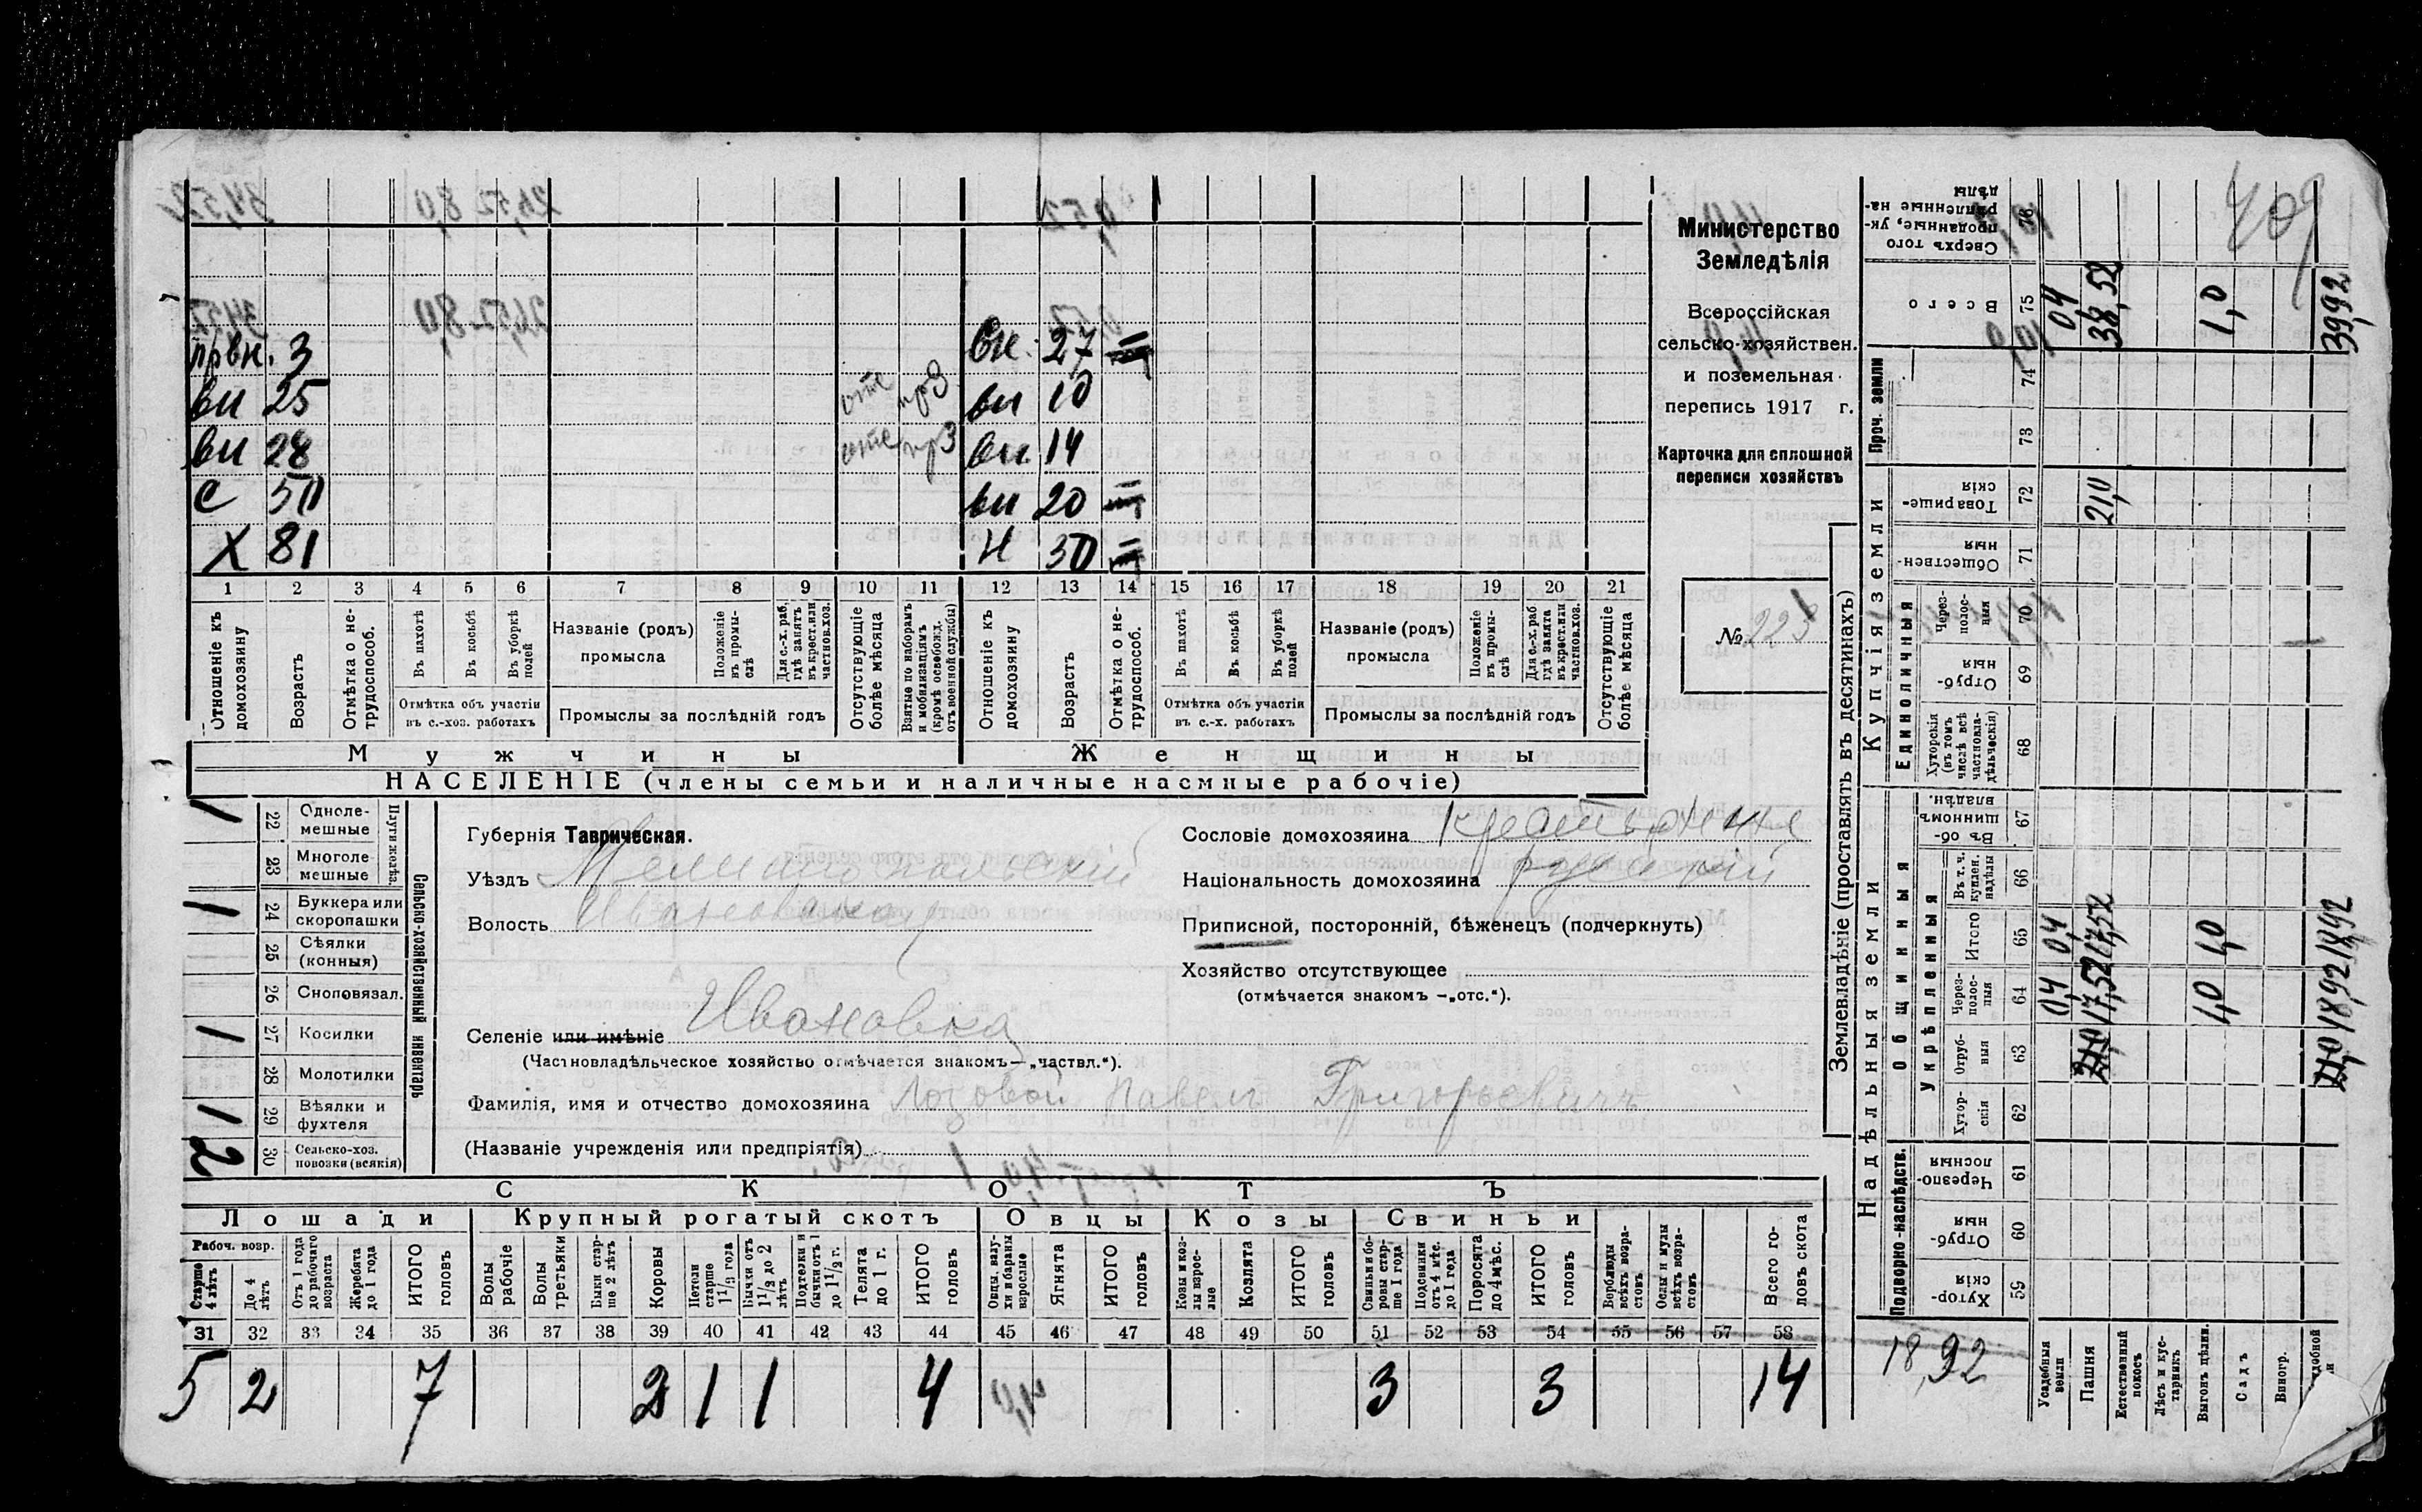 409
првн. 3 вн. 27
вн 25 отс прз вн 10
вн 28 отс прз вн. 14
с 50 вн 20
Х 81 Н 50
1 2 3 4 5 6 7 8 9 10 11 12 13 14 15 16 17 18 19 20 21
Отношеніе къ домохозяину
Возрастъ
Отмѣтка о нетрудоспособ.
Въ пахотѣ
Въ косьбѣ
Въ уборкѣ полей
Отмѣтка объ участіи
въ с.-хоз. работахъ
Названіе (родъ)
промысла
Положеніе въ промыслѣ
Для с.-х. раб. гдѣ занятъ въ крест. или частнов. хоз.
Промыслы за послѣдній годъ
Отсутствующіе болѣе мѣсяца
Взятые по наборамъ и мобилизаціямъ (кромѣ освобожд. отъ военной службы)
Отношеніе къ домохозяину
Возрастъ
Отмѣтка о нетрудоспособ.
Въ пахотѣ
Въ косьбѣ
Въ уборкѣ полей
Отмѣтка объ участіи
въ с.-х. работахъ
Названіе (родъ)
промысла
Положеніе въ промыслѣ
Для с.-х. раб гдѣ занята въ крест. или частнов. хоз.
Промыслы за послѣдній годъ
Отсутствующіе болѣе мѣсяца
Мужчины Женщины
НАСЕЛЕНІЕ (члены семьи и наличные наемные рабочіе)
Министерство
Земледѣлія
Всероссійская
сельско-хозяйствен.
и поземельная
перепись 1917 г.
Карточка для сплошной
переписи хозяйствъ
№ 223
Сельско-хозяйственный инвентарь
Плуги желѣз.
1 22 Однолемешные
23 Многолемешные
1 24 Буккера или скоропашки
25 Сѣялки (конныя)
26 Сноповязал.
1 27 Косилки
28 Молотилки
1 29 Вѣялки и фухтеля
2 30 Сельско-хоз. повозки (всякія)
Губернія Таврическая.
Уѣздъ Мелитопольскій
Волость Ивановская
Селеніе или имѣніе Ивановка
(Частновладѣльческое хозяйство отмѣчается знакомъ—„частвл.“).
Фамилія, имя и отчество домохозяина Лозовой Павелъ Григорьевичъ
(Названіе учрежденія или предпріятія)
Сословіе домохозяина крестьянинъ
Національность домохозяина русскій
Приписной, посторонній, бѣженецъ (подчеркнуть)
Хозяйство отсутствующее
(отмѣчается знакомъ —„отс.“).
СКОТЪ
Лошади Крупный рогатый скотъ Овцы Козы Свиньи
Рабоч. возр.
Старше 4 лѣтъ
До 4 лѣтъ
Отъ 1 года до рабочаго возраста
Жеребята до 1 года
ИТОГО головъ
Волы рабочіе
Волы третьяки
Быки старше 2 лѣтъ
Коровы
Нетели старше 1½ года
Бычки отъ 1½ до 2 лѣтъ
Подтелки и бычки отъ 1 до 1½ г.
Телята до 1 г.
ИТОГО головъ
Овцы, валухи и бараны взрослые
Ягнята
ИТОГО головъ
Козы и козлы взрослые
Козлята
ИТОГО головъ
Свиньи и боровы старше 1 года
Подсвинки отъ 4 мѣс. до 1 года
Поросята до 4 мѣс.
ИТОГО головъ
Верблюды всѣхъ возрастовъ
Ослы и мулы всѣхъ возрастовъ
Всего головъ скота
31 32 33 34 35 36 37 38 39 40 41 42 43 44 45 46 47 48 49 50 51 52 53 54 55 56 57 58
5 2 7 2 1 1 4 3 3 14
Землевладѣніе (проставлять въ десятинахъ)
Надѣльныя земли
Купчія земли
Проч. земли
Подворно-наслѣдств.
Общинныя
Укрѣпленныя
Единоличныя
Сверхъ того проданные, укрѣпленные надѣлы 76
Всего 75 04 38,52 1,0 39,92
74
73
Товарищескія 72 21,0
Общественныя 71
Черезполосныя 70
Отрубныя 69
Хуторскія (въ томъ числѣ всѣ частновладѣльческія) 68
Въ общинномъ владѣн. 67
Въ т. ч. куплен. надѣлы 66
Итого 65 04 17,52 1,0 18,92
Черезполосныя 64 04 17,52 1,0 18,92
Отрубныя 63 21,0 21,0
Хуторскія 62
Черезполосныя 61
Отрубныя 60
Хуторскія 59
18,92
Усадебныя земли
Пашня
Естественный покосъ
Лѣсъ и кустарникъ
Выгонъ цѣлин.
Садъ
Виногр.